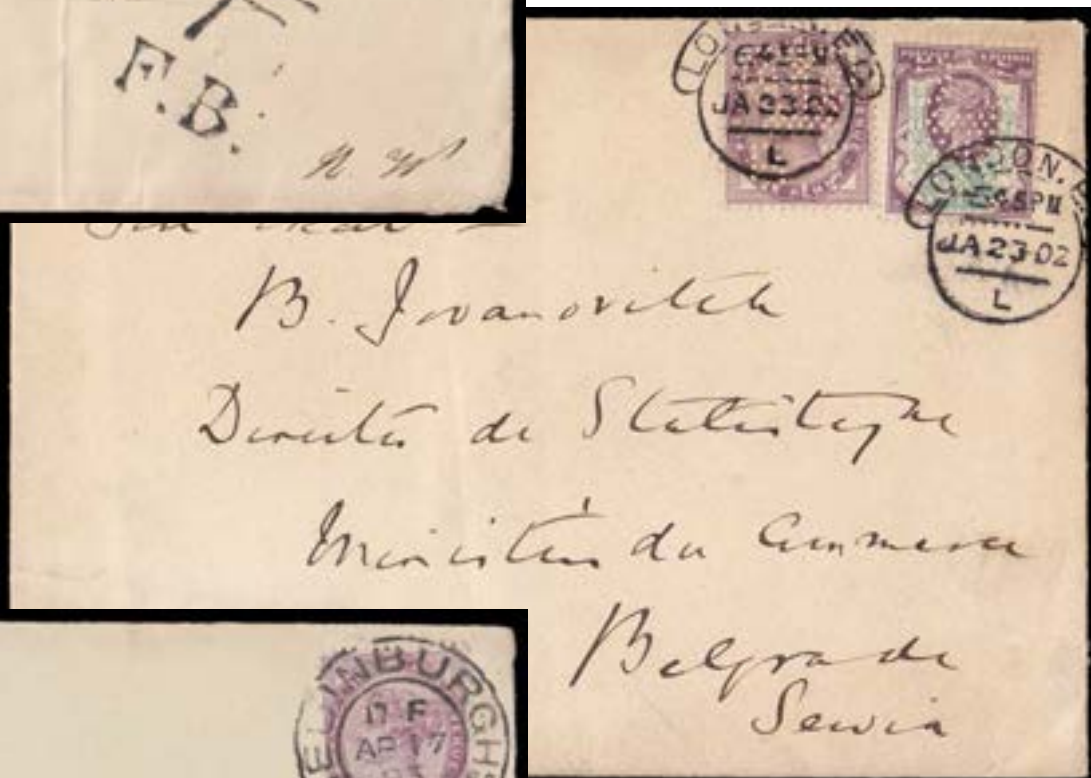 F.B.
LONDON. E.C.
6.45 PM
JA 23 02
L
LONDON. E
5.45 PM
JA 23 02
L
B. Jovanovitch
Director de Statistique
Ministère du Commerce
Belgrade
Servia
EDINBURGH
D F
AP 17